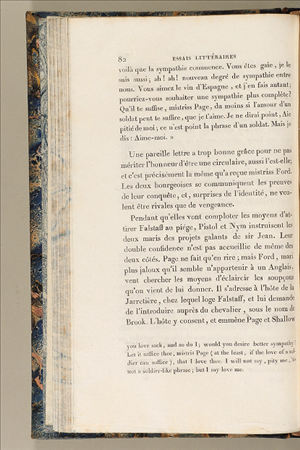 82 ESSAIS LITTÉRAIRES
voilà que la sympathie commence. Vous êtes gaie, je le
suis aussi; ah! ah! nouveau degré de sympathie entre
nous. Vous aimez le vin d'Espagne, et j'en fais autant;
pourriez-vous souhaiter une sympathie plus complète?
Qu'il te suffise, mistriss Page, du moins si l'amour d'un
soldat peut te suffire, que je t'aime. Je ne dirai point, Aie
pitié de moi; ce n'est point la phrase d'un soldat. Mais je
dis: Aime-moi. »
Une pareille lettre a trop bonne grâce pour ne pas
mériter l'honneur d'être une circulaire, aussi l'est-elle;
et c'est précisément la même qu'a reçue mistriss Ford.
Les deux bourgeoises se communiquent les preuves
de leur conquête, et, surprises de l'identité, ne veu-
lent être rivales que de vengeance.
Pendant qu'elles vont comploter les moyens d'at-
tirer Falstaff au piége, Pistol et Nym instruisent les
deux maris des projets galants de sir Jean. Leur
double confidence n'est pas accueillie de même des
deux côtés. Page ne fait qu'en rire; mais Ford, mari
plus jaloux qu'il semble n'appartenir à un Anglais,
veut chercher les moyens d'éclaircir les soupçons
qu'on vient de lui donner. Il s'adresse à l'hôte de la
Jarretière, chez lequel loge Falstaff, et lui demande
de l'introduire auprès du chevalier, sous le nom de
Brook. L'hôte y consent, et emmène Page et Shallow
you love sack, and so do I; would you desire better sympathy?
Let it suffice thee, mistris Page (at the least, if the love of a sol-
dier can suffice), that I love thee. I will not say, pity me,
not a soldier-like phrase; but I say love me.